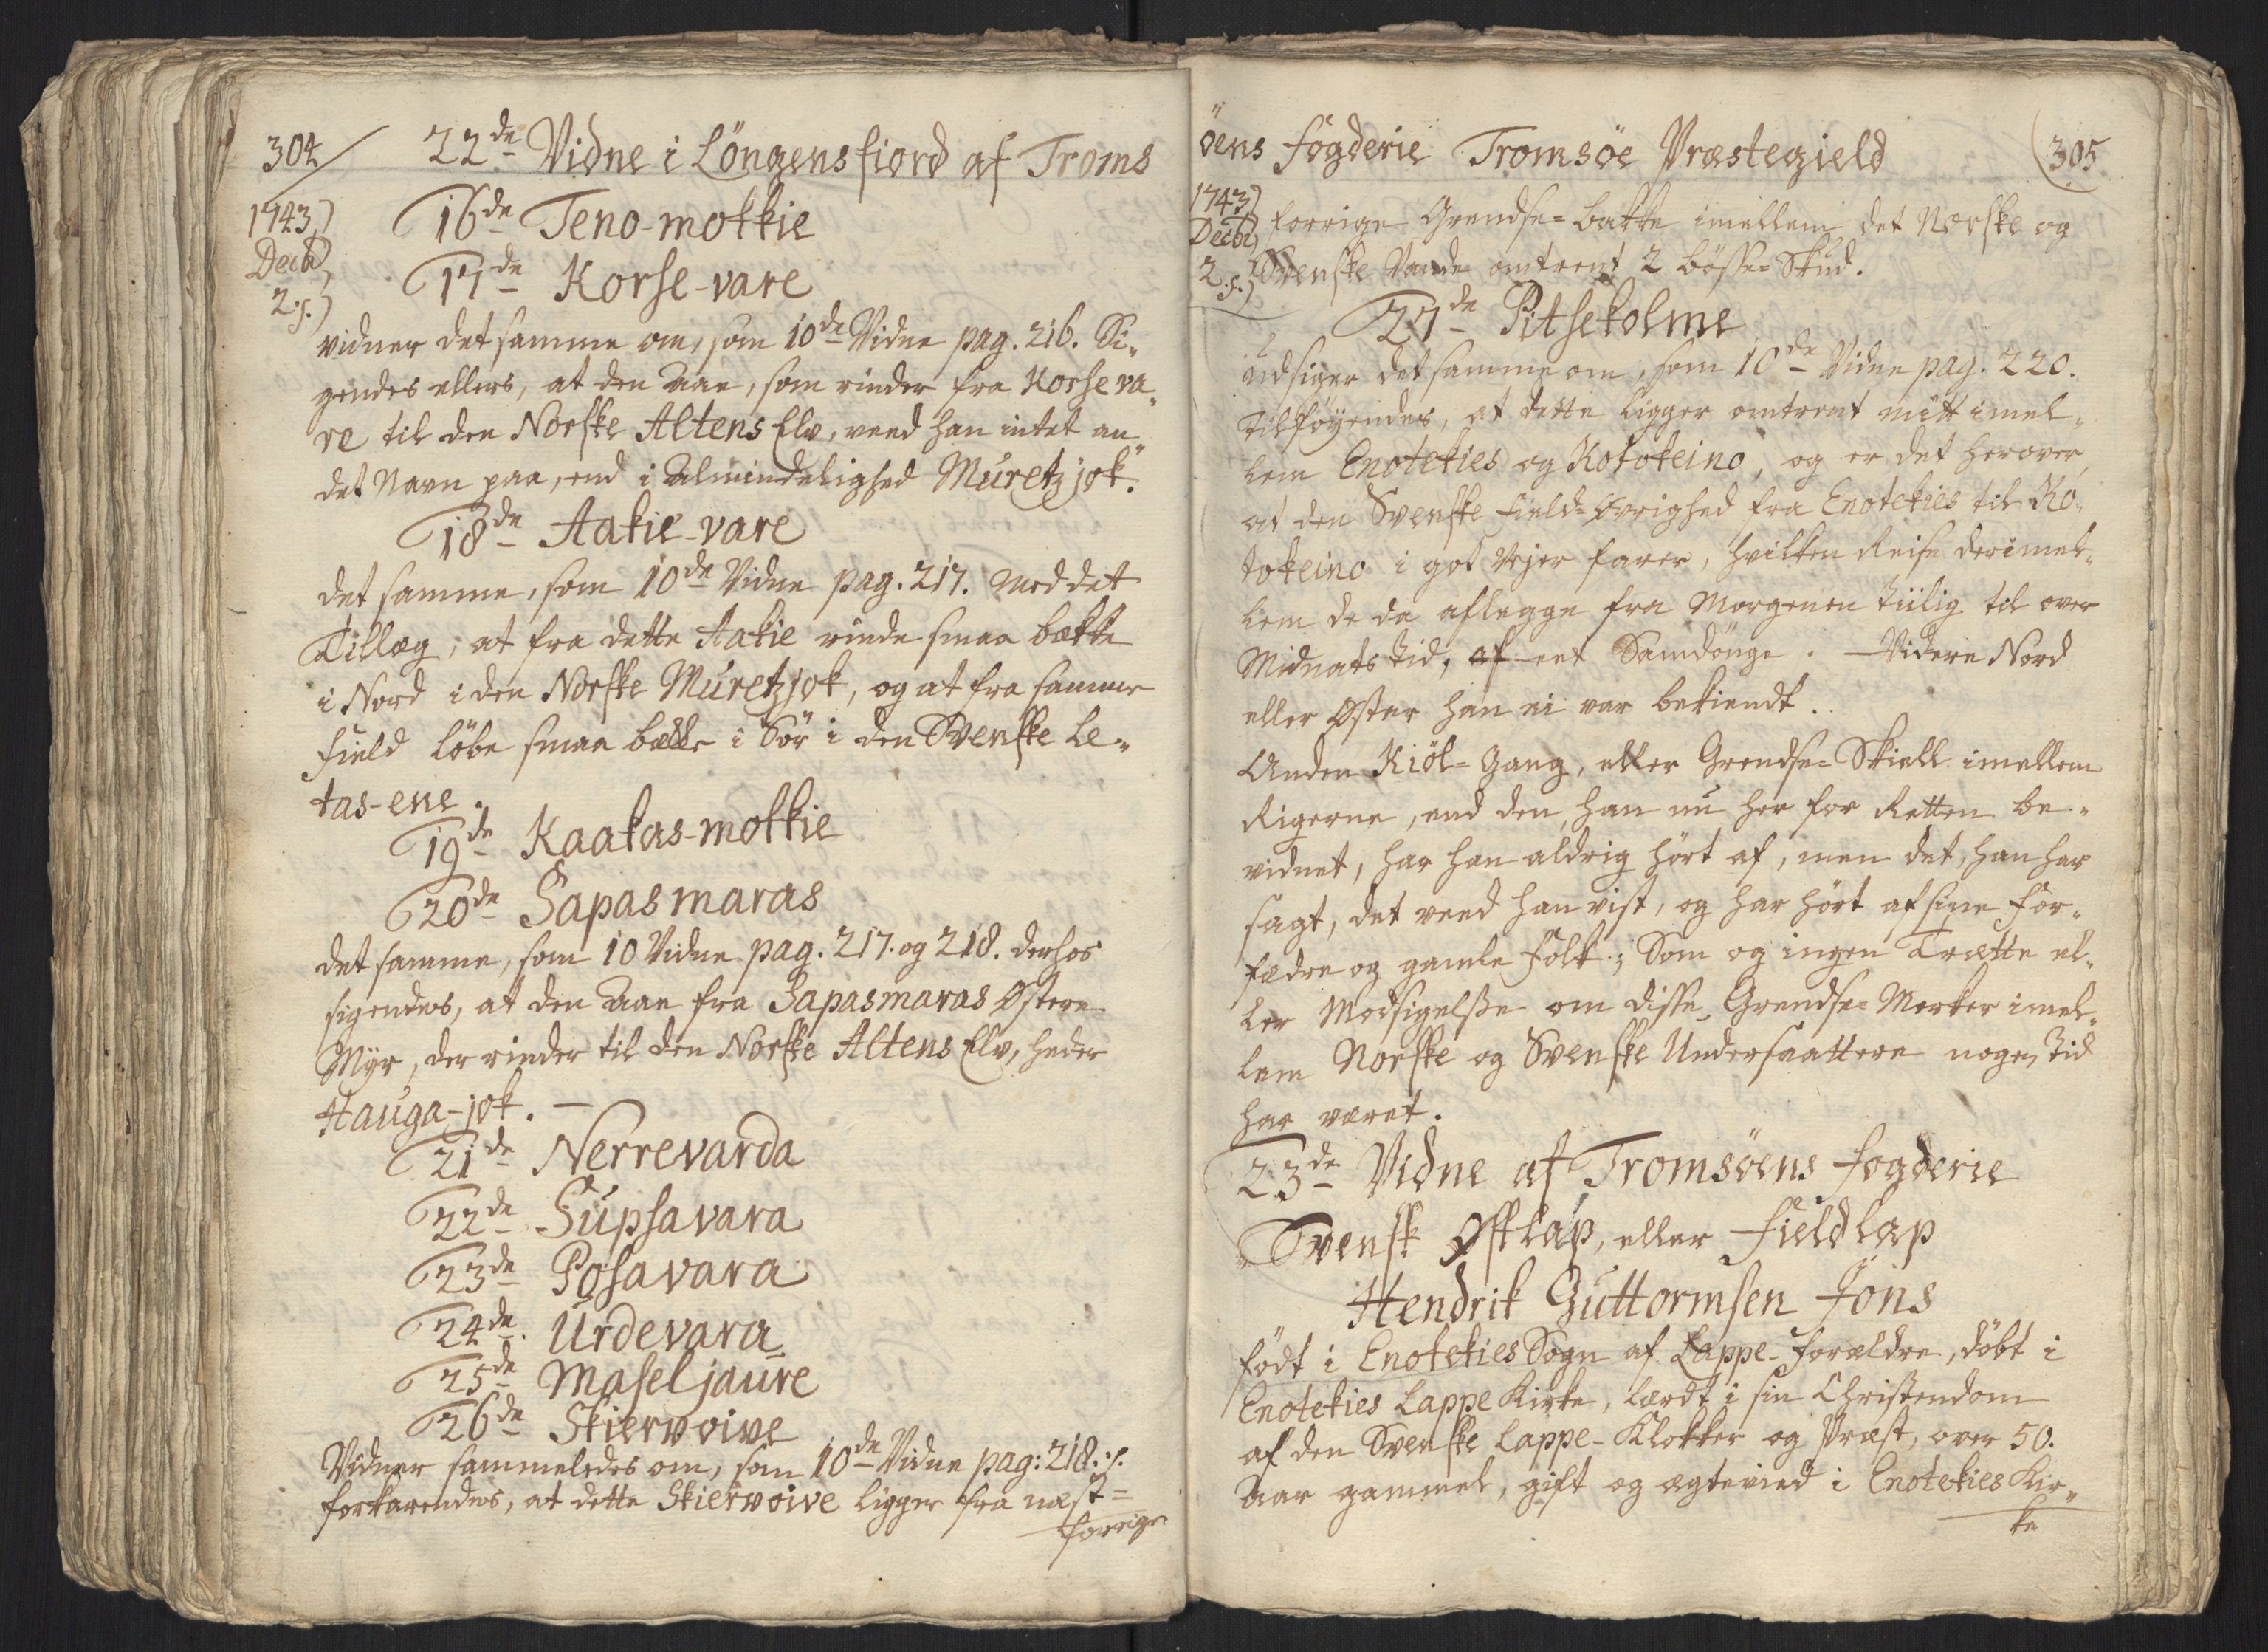 304
22de Vidne i Löngensfiord af Troms
1743
Decbr
2. s.
16de Teno-mokkie
17de Korse-vare
vidner det samme om, som 10de Vidne pag. 216. Si-
gendes ellers, at den Aae, som rinder fra Korseva-
re til den Norske Altens Elv, veed han intet an-
det Navn paa, end i Almindelighed Muretzjok.
18de Aakie-vare
det samme, som 10de Vidne pag. 217. med det
Tillæg, at fra dette Aakie rinde smaa bække
i Nord i den Norske Muretzjok, og at fra samme
Field löbe smaa bække i Sör i den Svenske Le-
tas-ene.
19de Kaakas-mokkie
20de Sapasmaras
det samme, som 10 Vidne pag. 217. og 218. derhos
sigendes, at den Aae fra Sapasmaras Østere
Myr, der rinder til den Norske Altens Elv, heder
Hauga-jok. —
21de Nerrevarda
22de Supsavara
23de Posavara
24de Urdevara
25de Maseljaure
26de Skiervoive
Vidner sammeledes om, som 10de Vidne pag: 218. s.
forklarendes, at dette Skiervoive ligger fra næst=
forrige
öens Fogderie Tromsöe Præstegield
305
1743
Decbr
2. s.
forrige Grendse=bakke imellem det Norske og
Svenske Vande omtrent 2 bösse=Skud.
27de Pitsekolme
udsiger det samme om, som 10de Vidne pag. 220.
tilföyendes, at dette ligger omtrent mitt imel-
lem Enotekies og Kotokeino, og er det herover,
at den Svenske Field=Øvrighed fra Enotekies til Ko-
tokeino i got Vejer farer, hvilken Reise derimel-
lem de da aflegge fra Morgenen tiilig til over
Midnats Tid, af eet Samdönge. Videre Nord
eller Øster han ei var bekiendt.
Anden Kiöl=Gang, eller Grendse=Skiell imellem
Rigerne, end den, han nu her for Retten be-
vidnet, har han aldrig hört af, men det, han har
sagt, det veed han vist, og har hört af sine For-
fædre og gamle Folk; Som og ingen Trætte el-
ler Modsigelsse om disse Grendse=Merker imel-
lem Norske og Svenske Undersaattere nogen Tid
har været.
23de Vidne af Tromsöens Fogderie
Svensk Østlap, eller Fieldlap
Hendrik Guttormsen Jöns
Födt i Enotekies Sogn af Lappe-Forældre, döbt i
Enotekies Lappe Kirke, lærdt i sin Christendom
af den Svenske Lappe-Klokker og Præst, over 50.
Aar gammel, gift og ægteviet i Enotekies Kir-
ke